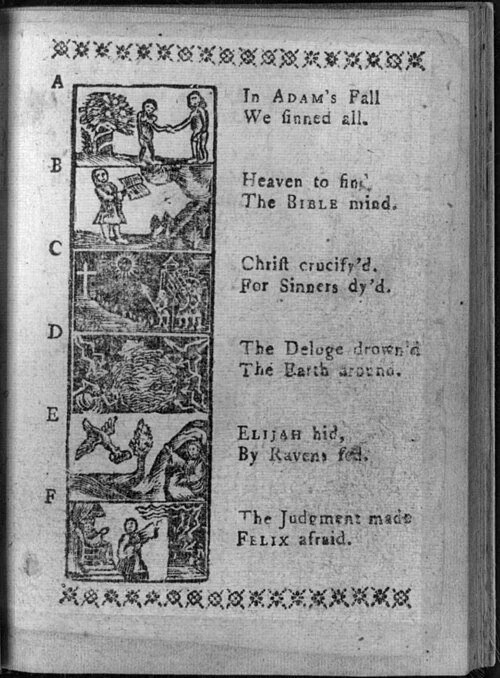 A
In ADAM's Fall
We ſinned all.
B
Heaven to find
The BIBLE mind.
C
Chriſt crucify'd.
For Sinners dy'd.
D
The Deluge drown'd
The Earth around.
E
ELIJAH hid,
By Ravens fed.
F
The Judgment made
FELIX afraid.